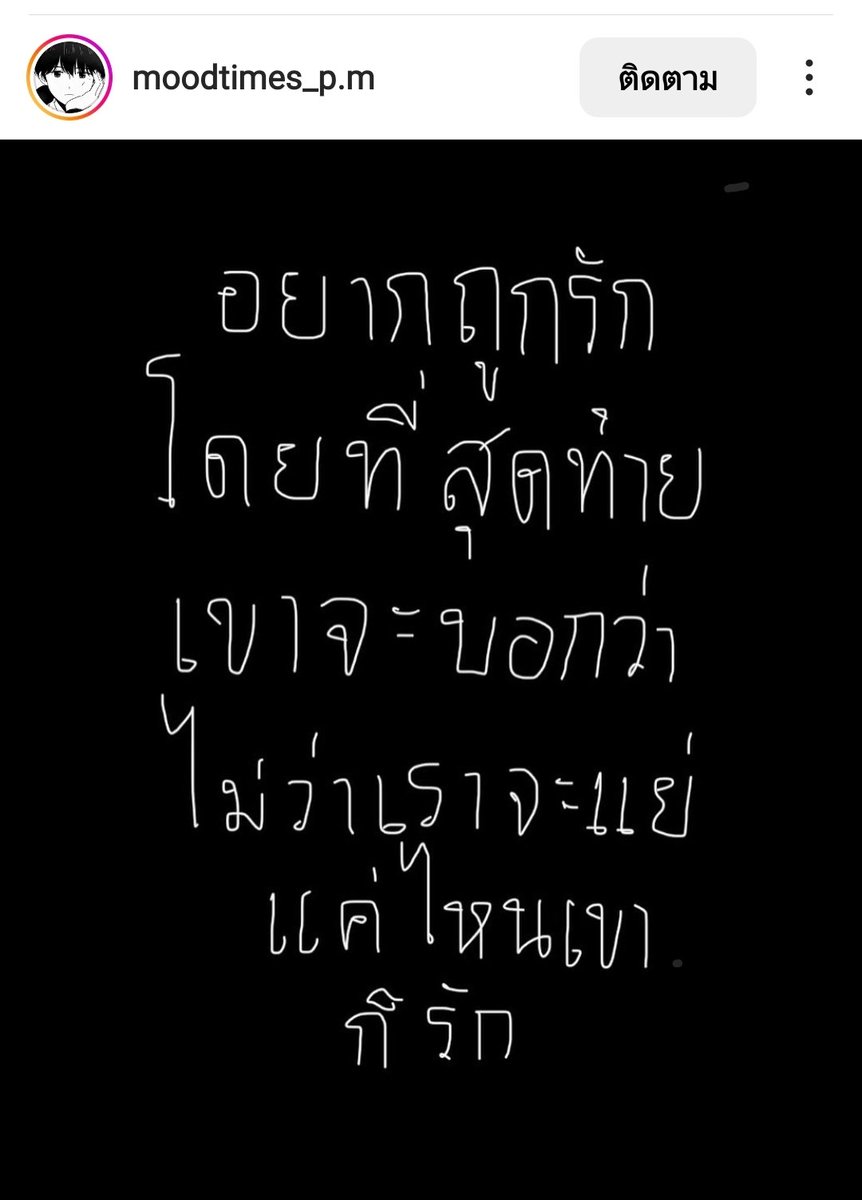 moodtimes_p.m
ติดตาม
อยากถูกรัก
โดยที่สุดท้าย
เขาจะบอกว่า
ไม่ว่าเราจะแย่
แค่ไหนเขา
ก็รัก